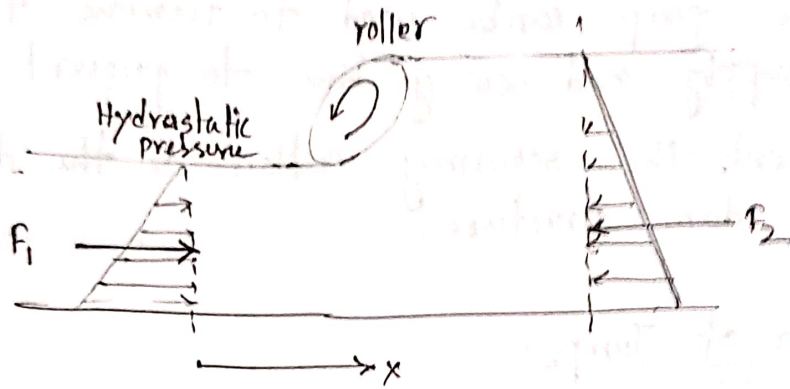 roller
Hydrastatic
pressure
F₁
F₂
x